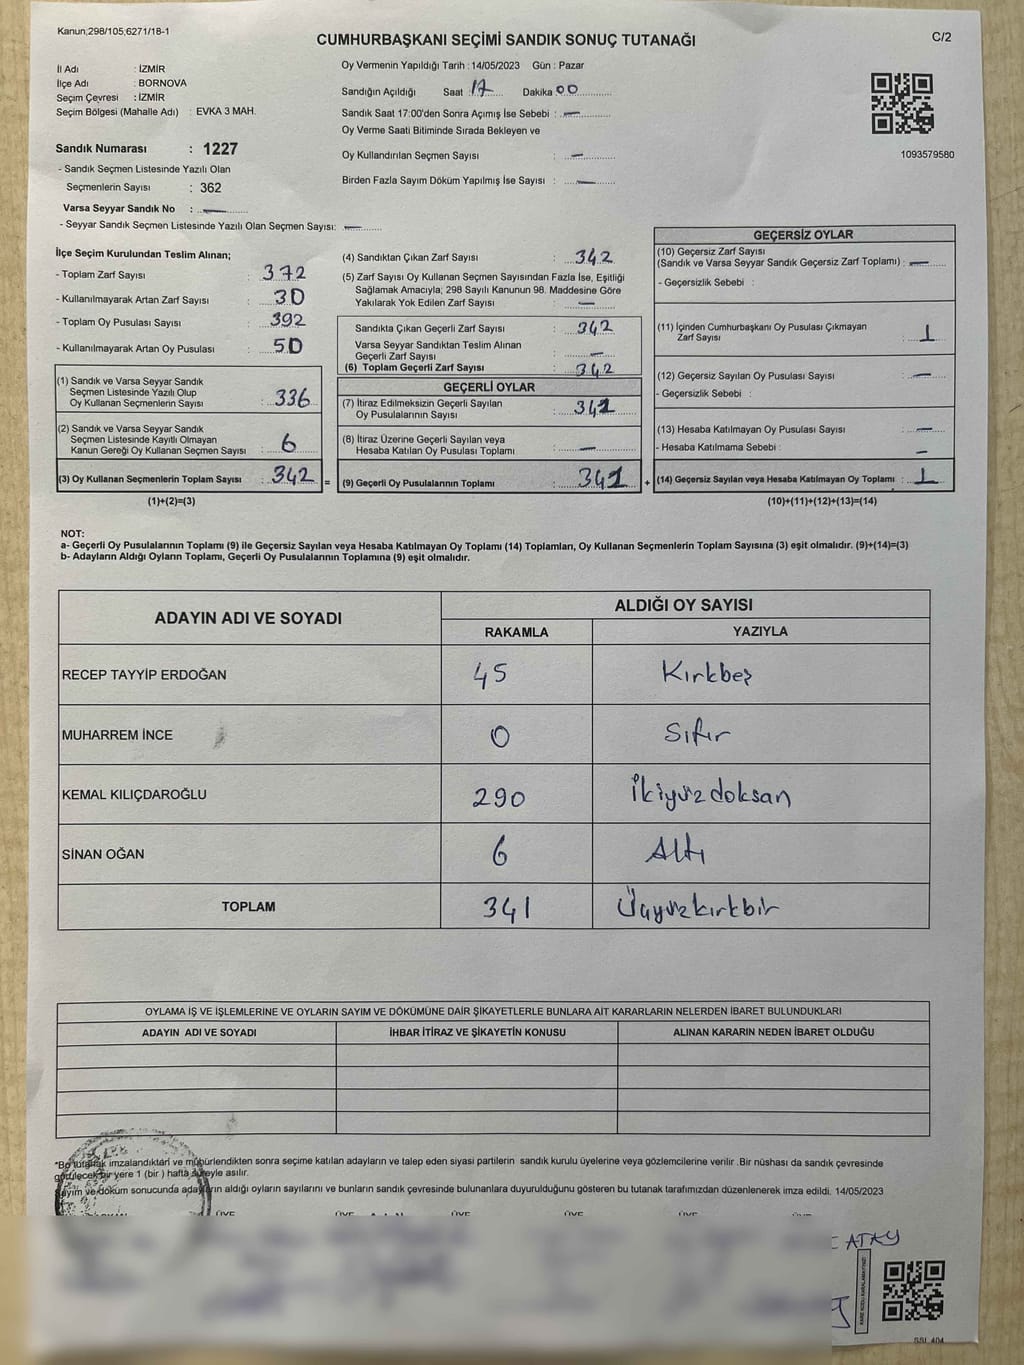 Kanun,298/105,6271/18-1
CUMHURBAŞKANI SEÇİMİ SANDIK SONUÇ TUTANAĞI
C/2
İl Adı : İZMİR
İlçe Adı : BORNOVA
Seçim Çevresi : İZMİR
Seçim Bölgesi (Mahalle Adı) : EVKA 3 MAH.
Sandık Numarası : 1227
- Sandık Seçmen Listesinde Yazılı Olan
Seçmenlerin Sayısı : 362
Varsa Seyyar Sandık No : —
- Seyyar Sandık Seçmen Listesinde Yazılı Olan Seçmen Sayısı: —
Oy Vermenin Yapıldığı Tarih : 14/05/2023 Gün : Pazar
Sandığın Açıldığı Saat : 17 Dakika 00
Sandık Saat 17:00'den Sonra Açımış İse Sebebi : —
Oy Verme Saati Bitiminde Sırada Bekleyen ve
Oy Kullandırılan Seçmen Sayısı : —
Birden Fazla Sayım Döküm Yapılmış İse Sayısı : —
1093579580
İlçe Seçim Kurulundan Teslim Alınan;
- Toplam Zarf Sayısı : 372
- Kullanılmayarak Artan Zarf Sayısı : 30
- Toplam Oy Pusulası Sayısı : 392
- Kullanılmayarak Artan Oy Pusulası : 50
(1) Sandık ve Varsa Seyyar Sandık
Seçmen Listesinde Yazılı Olup
Oy Kullanan Seçmenlerin Sayısı : 336
(2) Sandık ve Varsa Seyyar Sandık
Seçmen Listesinde Kayıtlı Olmayan
Kanun Gereği Oy Kullanan Seçmen Sayısı : 6
(3) Oy Kullanan Seçmenlerin Toplam Sayısı : 342 =
(1)+(2)=(3)
(4) Sandıktan Çıkan Zarf Sayısı : 342
(5) Zarf Sayısı Oy Kullanan Seçmen Sayısından Fazla İse, Eşitliği
Sağlamak Amacıyla; 298 Sayılı Kanunun 98. Maddesine Göre
Yakılarak Yok Edilen Zarf Sayısı : —
Sandıkta Çıkan Geçerli Zarf Sayısı : 342
Varsa Seyyar Sandıktan Teslim Alınan
Geçerli Zarf Sayısı : —
(6) Toplam Geçerli Zarf Sayısı : 342
GEÇERLİ OYLAR
(7) İtiraz Edilmeksizin Geçerli Sayılan
Oy Pusulalarının Sayısı : 341
(8) İtiraz Üzerine Geçerli Sayılan veya
Hesaba Katılan Oy Pusulası Toplamı : —
(9) Geçerli Oy Pusulalarının Toplamı : 341 +
GEÇERSİZ OYLAR
(10) Geçersiz Zarf Sayısı
(Sandık ve Varsa Seyyar Sandık Geçersiz Zarf Toplamı) : —
- Geçersizlik Sebebi :
(11) İçinden Cumhurbaşkanı Oy Pusulası Çıkmayan
Zarf Sayısı : 1
(12) Geçersiz Sayılan Oy Pusulası Sayısı : —
- Geçersizlik Sebebi :
(13) Hesaba Katılmayan Oy Pusulası Sayısı : —
- Hesaba Katılmama Sebebi : —
(14) Geçersiz Sayılan veya Hesaba Katılmayan Oy Toplamı : 1
(10)+(11)+(12)+(13)=(14)
NOT:
a- Geçerli Oy Pusulalarının Toplamı (9) ile Geçersiz Sayılan veya Hesaba Katılmayan Oy Toplamı (14) Toplamları, Oy Kullanan Seçmenlerin Toplam Sayısına (3) eşit olmalıdır. (9)+(14)=(3)
b- Adayların Aldığı Oyların Toplamı, Geçerli Oy Pusulalarının Toplamına (9) eşit olmalıdır.
ADAYIN ADI VE SOYADI
ALDIĞI OY SAYISI
RAKAMLA YAZIYLA
RECEP TAYYİP ERDOĞAN 45 Kırkbeş
MUHARREM İNCE 0 Sıfır
KEMAL KILIÇDAROĞLU 290 İkiyüzdoksan
SİNAN OĞAN 6 Altı
TOPLAM 341 Üçyüzkırkbir
OYLAMA İŞ VE İŞLEMLERİNE VE OYLARIN SAYIM VE DÖKÜMÜNE DAİR ŞİKAYETLERLE BUNLARA AİT KARARLARIN NELERDEN İBARET BULUNDUKLARI
ADAYIN ADI VE SOYADI İHBAR İTİRAZ VE ŞİKAYETİN KONUSU ALINAN KARARIN NEDEN İBARET OLDUĞU
*Bu tutanak imzalandıktan ve mühürlendikten sonra seçime katılan adayların ve talep eden siyasi partilerin sandık kurulu üyelerine veya gözlemcilerine verilir .Bir nüshası da sandık çevresinde
görülecek bir yere 1 (bir ) hafta süreyle asılır.
Sayım ve döküm sonucunda adayların aldığı oyların sayılarını ve bunların sandık çevresinde bulunanlara duyurulduğunu gösteren bu tutanak tarafımızdan düzenlenerek imza edildi. 14/05/2023
ÜYE ÜYE ÜYE ÜYE ÜYE
ATAY
KARE KODU KARALAMAYINIZ!